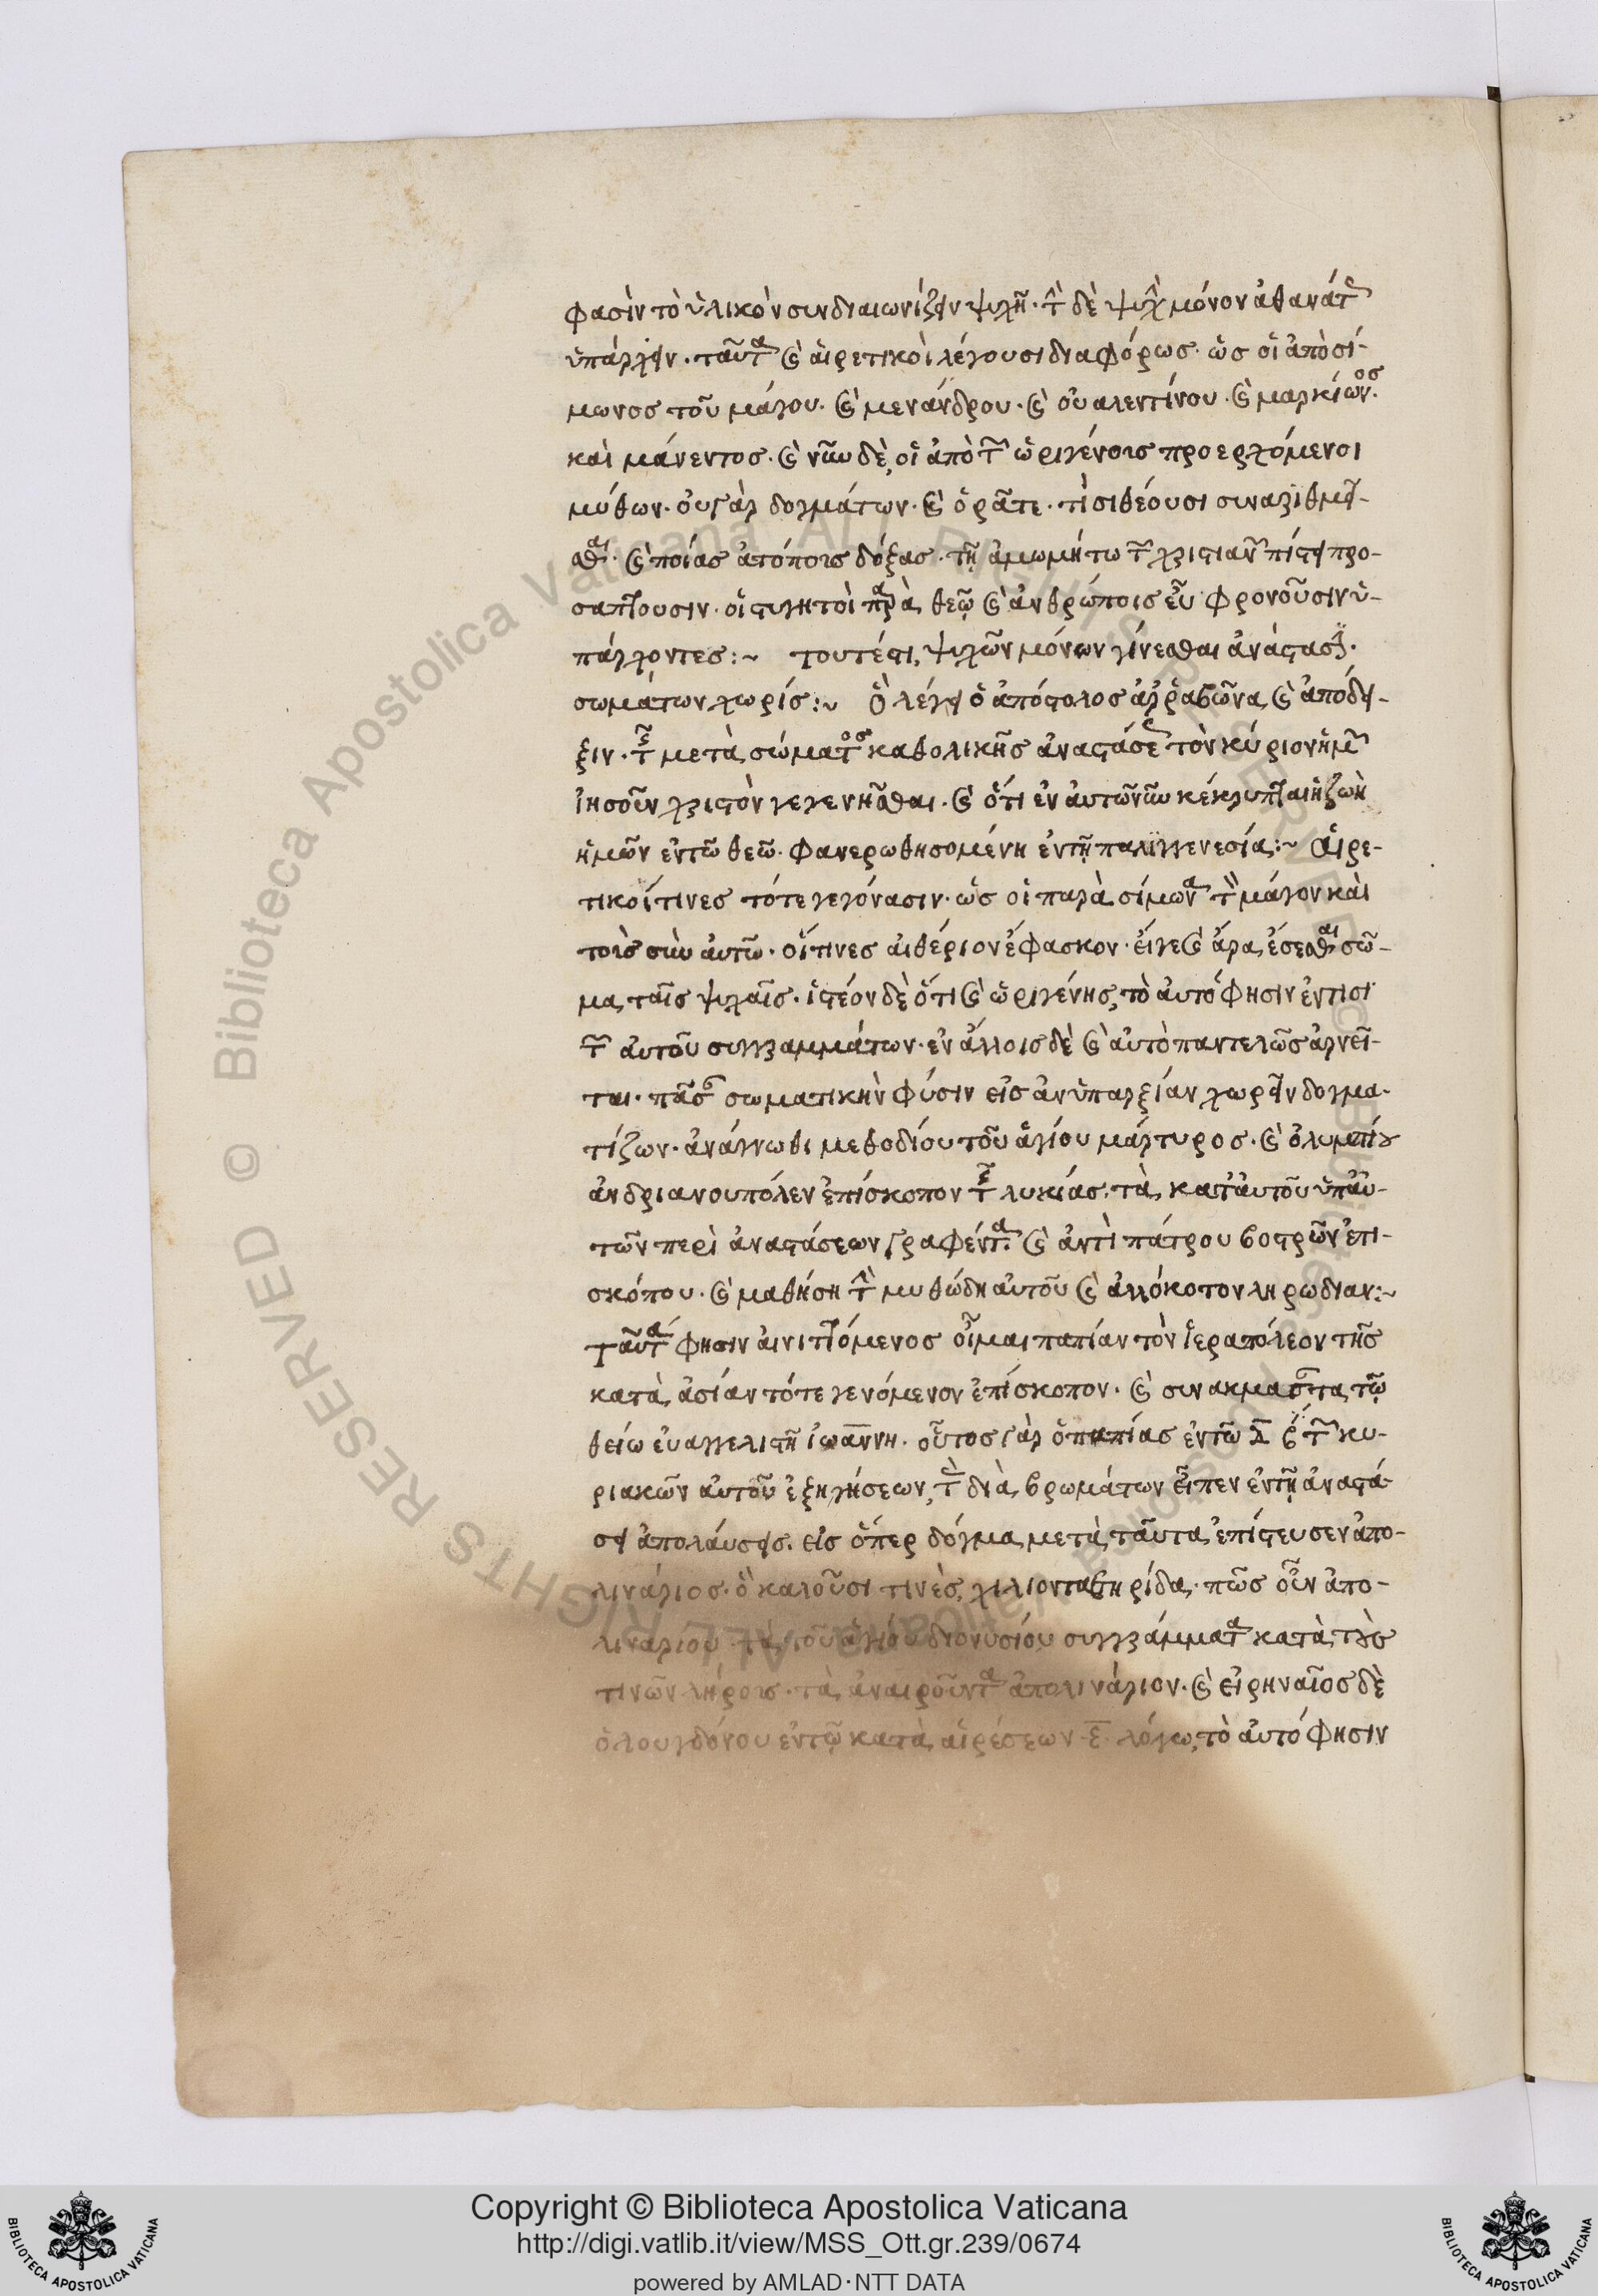 φασὶν τὸ ὑλικὸν συνδιαιωνίζειν ψυχῇ· τὴν δὲ ψυχὴν μόνον ἀθανάτην
ὑπάρχειν. ταῦτα καὶ αἱρετικοὶ λέγουσι διαφόρως. ὡς οἱ ἀπὸ σί-
μωνος τοῦ μάγου. καὶ μενάνδρου. καὶ οὐαλεντίνου. καὶ μαρκίωνος.
καὶ μάνεντος. καὶ νῦν δὲ, οἱ ἀπὸ τῶν ὠριγένους προερχόμενοι
μύθων. οὐ γὰρ δογμάτων. καὶ ὁρᾶτε. τίσι θέουσι συναριθμεῖ-
σθαι. καὶ ποίας ἀτόποις δόξας. τῇ ἀμωμήτω τῶν χριστιανῶν πίστει προ-
σάπτουσιν. οἱ στυγητοὶ παρὰ θεῷ καὶ ἀνθρώποις εὖ φρονοῦσιν ὑ-
πάρχοντες :~ τουτέστι, ψυχῶν μόνων γίνεσθαι ἀνάστασιν.
σωμάτων χωρίς :~ Ὃ λέγει ὁ ἀπόστολος ἀρραβῶνα καὶ ἀπόδει-
ξιν. τῆς μετὰ σώματος καθολικῆς ἀναστάσεως τὸν κύριον ἡμῶν
ἰησοῦν χριστὸν γεγενῆσθαι. καὶ ὅτι ἐν αὐτῶ νῦν κέκρυπται ἡ ζωὴ
ἡμῶν ἐν τῶ θεῶ. φανερωθησομένη ἐν τῇ παλιγγενεσία :~ Αἱρε-
τικοί τινες τότε γεγόνασιν. ὡς οἱ παρὰ σίμωνα τὸν μάγον καὶ
τοῖς σὺν αὐτῶ. οἵτινες αἰθέριον ἔφασκον. εἴγε καὶ ἄρα, ἔσεσθαι σῶ-
μα ταῖς ψυχαῖς. ἰστέον δὲ ὅτι καὶ ὠριγένης, τὸ αὐτό φησιν ἐν τισι
τῶν αὐτοῦ συγγραμμάτων. ἐν ἄλλοις δὲ καὶ αὐτὸ παντελῶς ἀρνεῖ-
ται. πᾶσαν σωματικὴν φύσιν εἰς ἀνυπαρξίαν χωρεῖν δογμα-
τίζων. ἀνάγνωθι μεθοδίου τοῦ ἁγίου μάρτυρος. καὶ ὀλυμπίου
ἀνδριανουπόλεν ἐπίσκοπον τῆς λυκίας, τὰ κατ' αὐτοῦ ὑπ' αὐ-
τῶν περὶ ἀναστάσεων γραφέντα. καὶ ἀντὶ πάτρου βοστρῶν ἐπι-
σκόπου. καὶ μαθήση τὴν μυθώδη αὐτοῦ καὶ ἀλλόκοτον ληρωδιαν :~
Ταῦτά φησιν αἰνιττόμενος οἶμαι παπίαν τὸν ἱεραπόλεον τῆς
κατὰ ἀσίαν τότε γενόμενον ἐπίσκοπον. καὶ συνακμάσαντα τῶ
θείω εὐαγγελιστῇ ἰωάννη. οὗτος γὰρ ὁ παπίας ἐν τῶ δ̅ βί τῶν κυ-
ριακῶν αὐτοῦ ἐξηγήσεων, τὰς διὰ βρωμάτων εἶπεν ἐν τῇ ἀναστά-
σει ἀπολαύσεις. εἰς ὅπερ δόγμα μετὰ ταῦτα ἐπίστευσεν ἀπο-
λινάριος. ὃ καλοῦσι τινὲς, χιλιονταετηρίδα. πῶς οὖν ἀπο-
λιναρίου τὰ τοῦ ἁγίου διονυσίου συγγράμματα κατὰ τοὺς
τινῶν λήρους. τὰ ἀναιροῦντα ἀπολινάριον. καὶ εἰρηναῖος δὲ
ὁ λουγδόνου ἐν τῷ κατὰ αἱρέσεων ε̅ λόγω, τὸ αὐτό φησιν
© Biblioteca Apostolica Vaticana ALL RIGHTS RESERVED
Copyright © Biblioteca Apostolica Vaticana
http://digi.vatlib.it/view/MSS_Ott.gr.239/0674
powered by AMLAD·NTT DATA
BIBLIOTECA APOSTOLICA VATICANA
BIBLIOTECA APOSTOLICA VATICANA